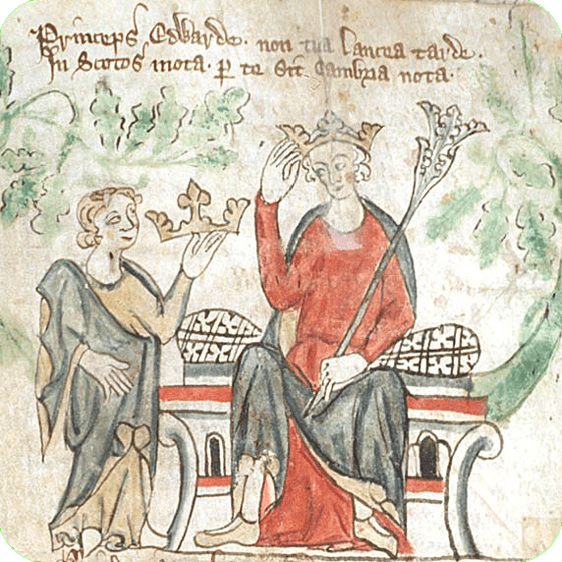 Princeps Edwarde· non tua lancea tarde·
In Scotos mota· ꝑ te Sit Cambria nota·